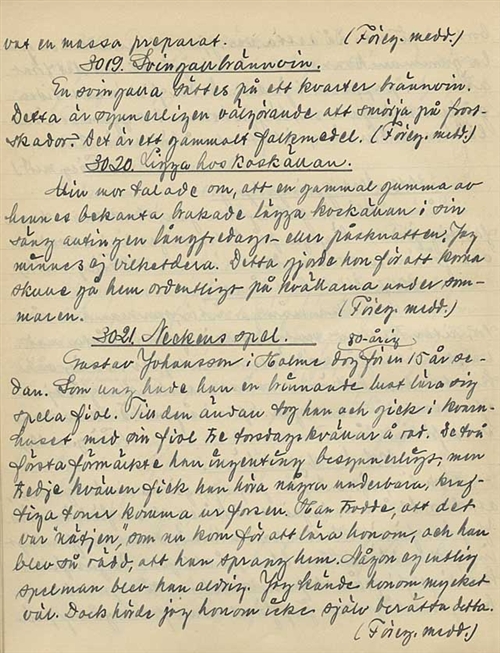 vat en massa preparat. (Föreg. medd.)
3019. Svingallbrännvin.
En svingalla sättes på ett kvarter brännvin.
Detta är synnerligen välgörande att smörja på frost-
skador. Det är ett gammalt folkmedel. (Föreg. medd.)
3020. Ligga hos koskällan.
Min mor talade om, att en gammal gumma av
hennes bekanta brukade lägga koskällan i sin
säng antingen långfredags- eller påsknatten. Jag
minnes ej vilketdera. Detta gjorde hon för att korna
skulle gå hem ordentligt på kvällarna under som-
maren. (Föreg. medd.)
3021. Neckens spel.
80-årig
Gustav Johansson i Holme dog för en 15 år se-
dan. Som ung hade han en brinnande lust lära sig
spela fiol. Till den ändan tog han och gick i kvarn-
huset med sin fiol tre torsdagskvällar å rad. De två
första förmärkte han ingenting besynnerligt, men
tredje kvällen fick han höra några underbara, kraf-
tiga toner komma ur forsen. Han trodde, att det
var "nätjen," som nu kom för att lära honom, och han
blev så rädd, att han sprang hem. Någon egentlig
spelman blev han aldrig. Jag kände honom mycket
väl. Dock hörde jag honom icke själv berätta detta.
(Föreg. medd.)